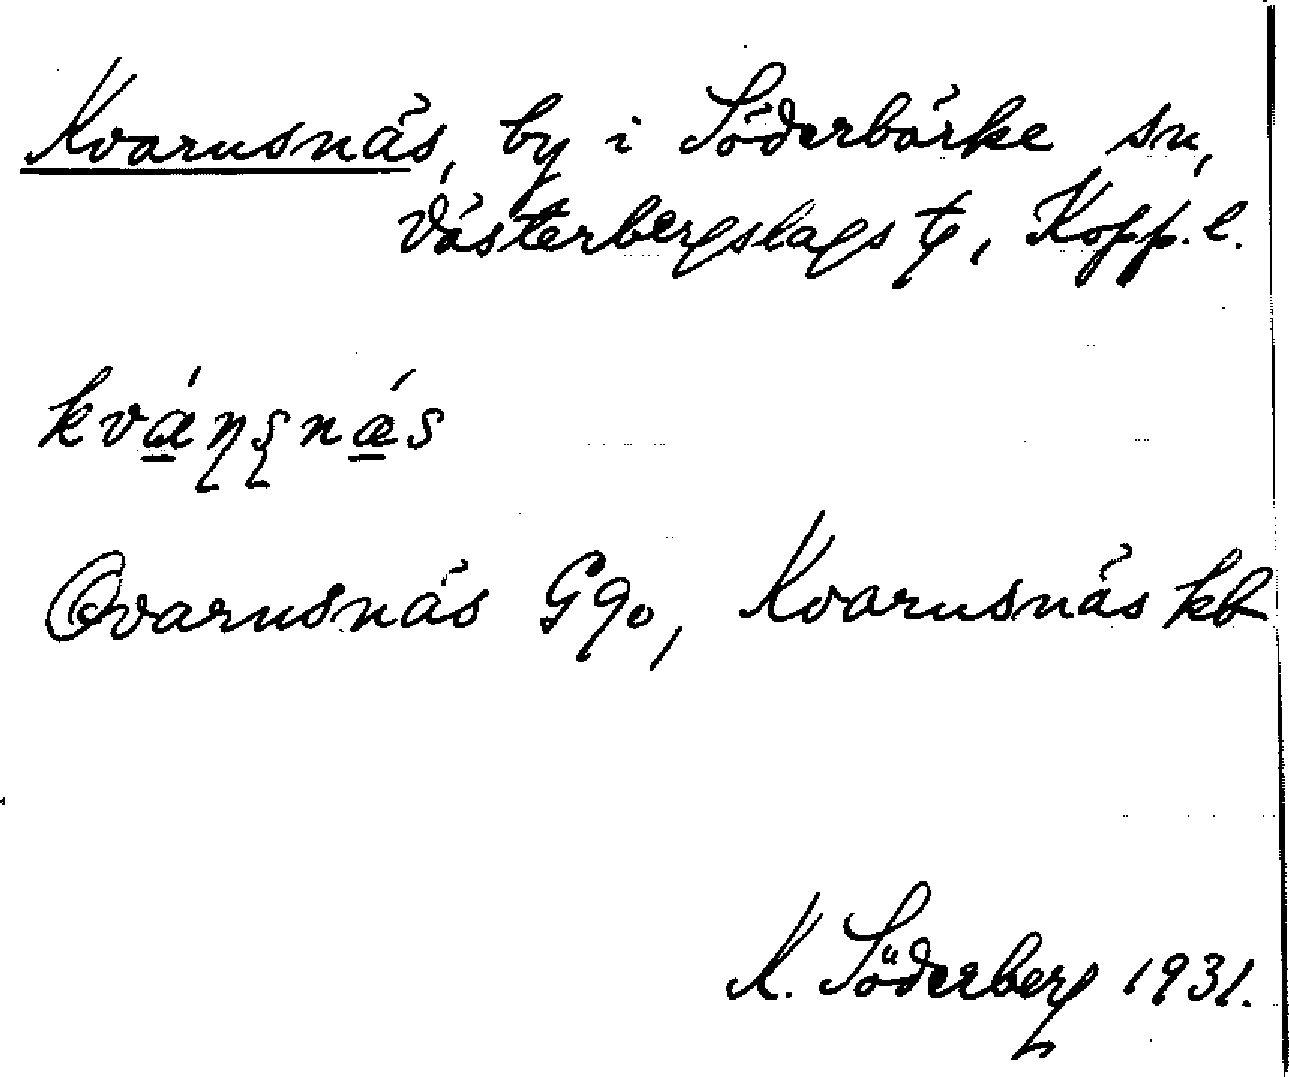 Kvarnsnäs, by i Söderbärke sn,
Västerbergslags tg, Kopp. l.
Qvarnsnäs Gqo, Kvarnsnäs kb
K. Söderberg 1931.